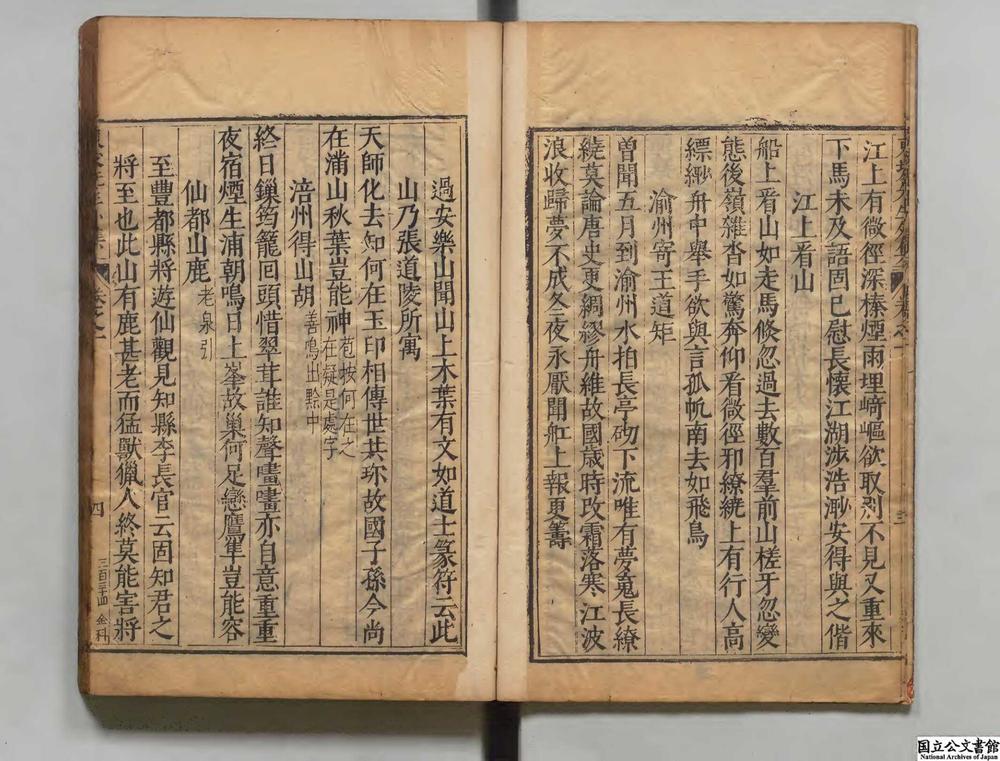 江上有微徑深榛煙雨埋﨑嶇欲取別不見又重來
下馬未及語固已慰長懷江湖涉浩渺安得與之偕
江上看山
船上看山如走馬倏忽過去數百羣前山槎牙忽變
態後嶺雜沓如驚奔仰看微徑邪繚繞上有行人高
縹緲舟中舉手欲與言孤帆南去如飛鳥
渝州寄王道矩
曾聞五月到渝州水拍長亭砌下流唯有夢䰟長繚
繞莫論唐史更綢繆舟維故國歲時改霜落寒江波
浪收歸夢不成冬夜永厭聞舡上報更籌
過安樂山聞山上木葉有文如道士篆符云此
山乃張道陵所寓
天師化去知何在玉印相傳世共珎故國子孫今尚
在滿山秋葉豈能神
苞按何在之
在疑是處字
涪州得山胡
善鳴出黔中
終日鏁筠籠回頭惜翠茸誰知聲𠾱𠾱亦自意重重
夜宿煙生浦朝鳴日上峯故巢何足戀鷹隼豈能容
仙都山鹿
老泉引
至豐都縣將遊仙觀見知縣李長官云固知君之
將至也此山有鹿甚老而猛獸獵人終莫能害將
四
三百三十四
金科
国立公文書館
National Archives of Japan